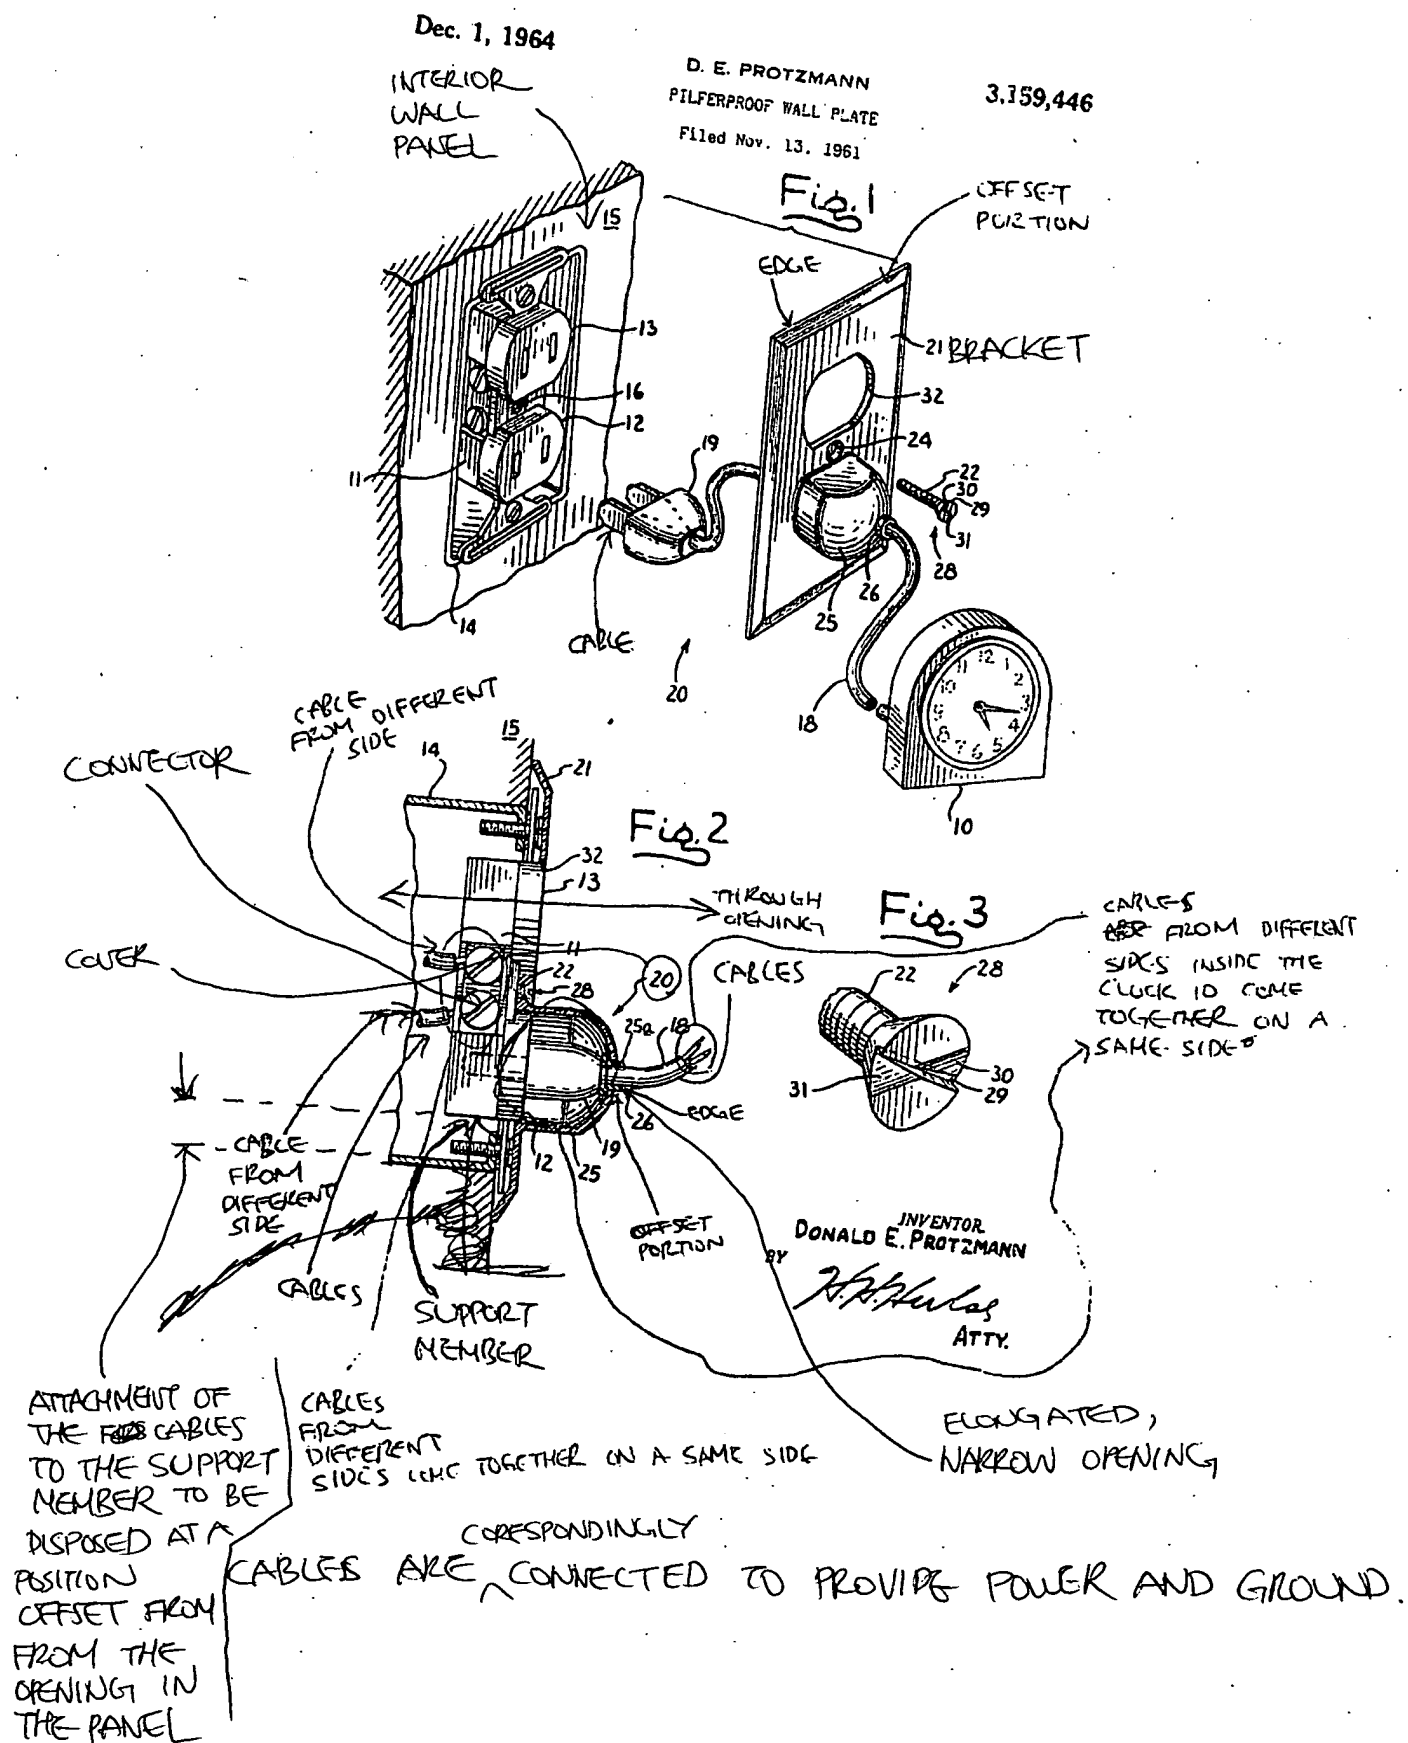 Dec. 1, 1964
D. E. PROTZMANN
3,159,446
PILFERPROOF WALL PLATE
Filed Nov. 13. 1961
INTERIOR
WALL
PANEL
Fig.1
OFFSET
PORTION
15
EDGE
13
21 BRACKET
16
32
12
24
19
11
22
30
29
31
28
25
26
14
CABLE
20
18
12
1
2
3
4
5
6
7
8
9
10
11
10
CABLE
FROM DIFFERENT
SIDE
CONNECTOR
14
15
21
Fig.2
32
13
THROUGH
OPENING
Fig.3
CABLES
FROM DIFFERENT
SIDES INSIDE THE
CLOCK 10 COME
TOGETHER ON A
SAME SIDE
COVER
11
22
28
20
CABLES
25a
18
22
28
30
29
31
EDGE
26
19
12
25
CABLE
FROM
DIFFERENT
SIDE
OFFSET
PORTION
INVENTOR
DONALD E. PROTZMANN
BY
ATTY.
CABLES
SUPPORT
MEMBER
ATTACHMENT OF
THE CABLES
TO THE SUPPORT
MEMBER TO BE
DISPOSED AT A
POSITION
OFFSET FROM
FROM THE
OPENING IN
THE PANEL
CABLES
FROM
DIFFERENT
SIDES COME TOGETHER ON A SAME SIDE
ELONGATED,
NARROW OPENING
CORESPONDINGLY
CABLES ARE ^ CONNECTED TO PROVIDE POWER AND GROUND.